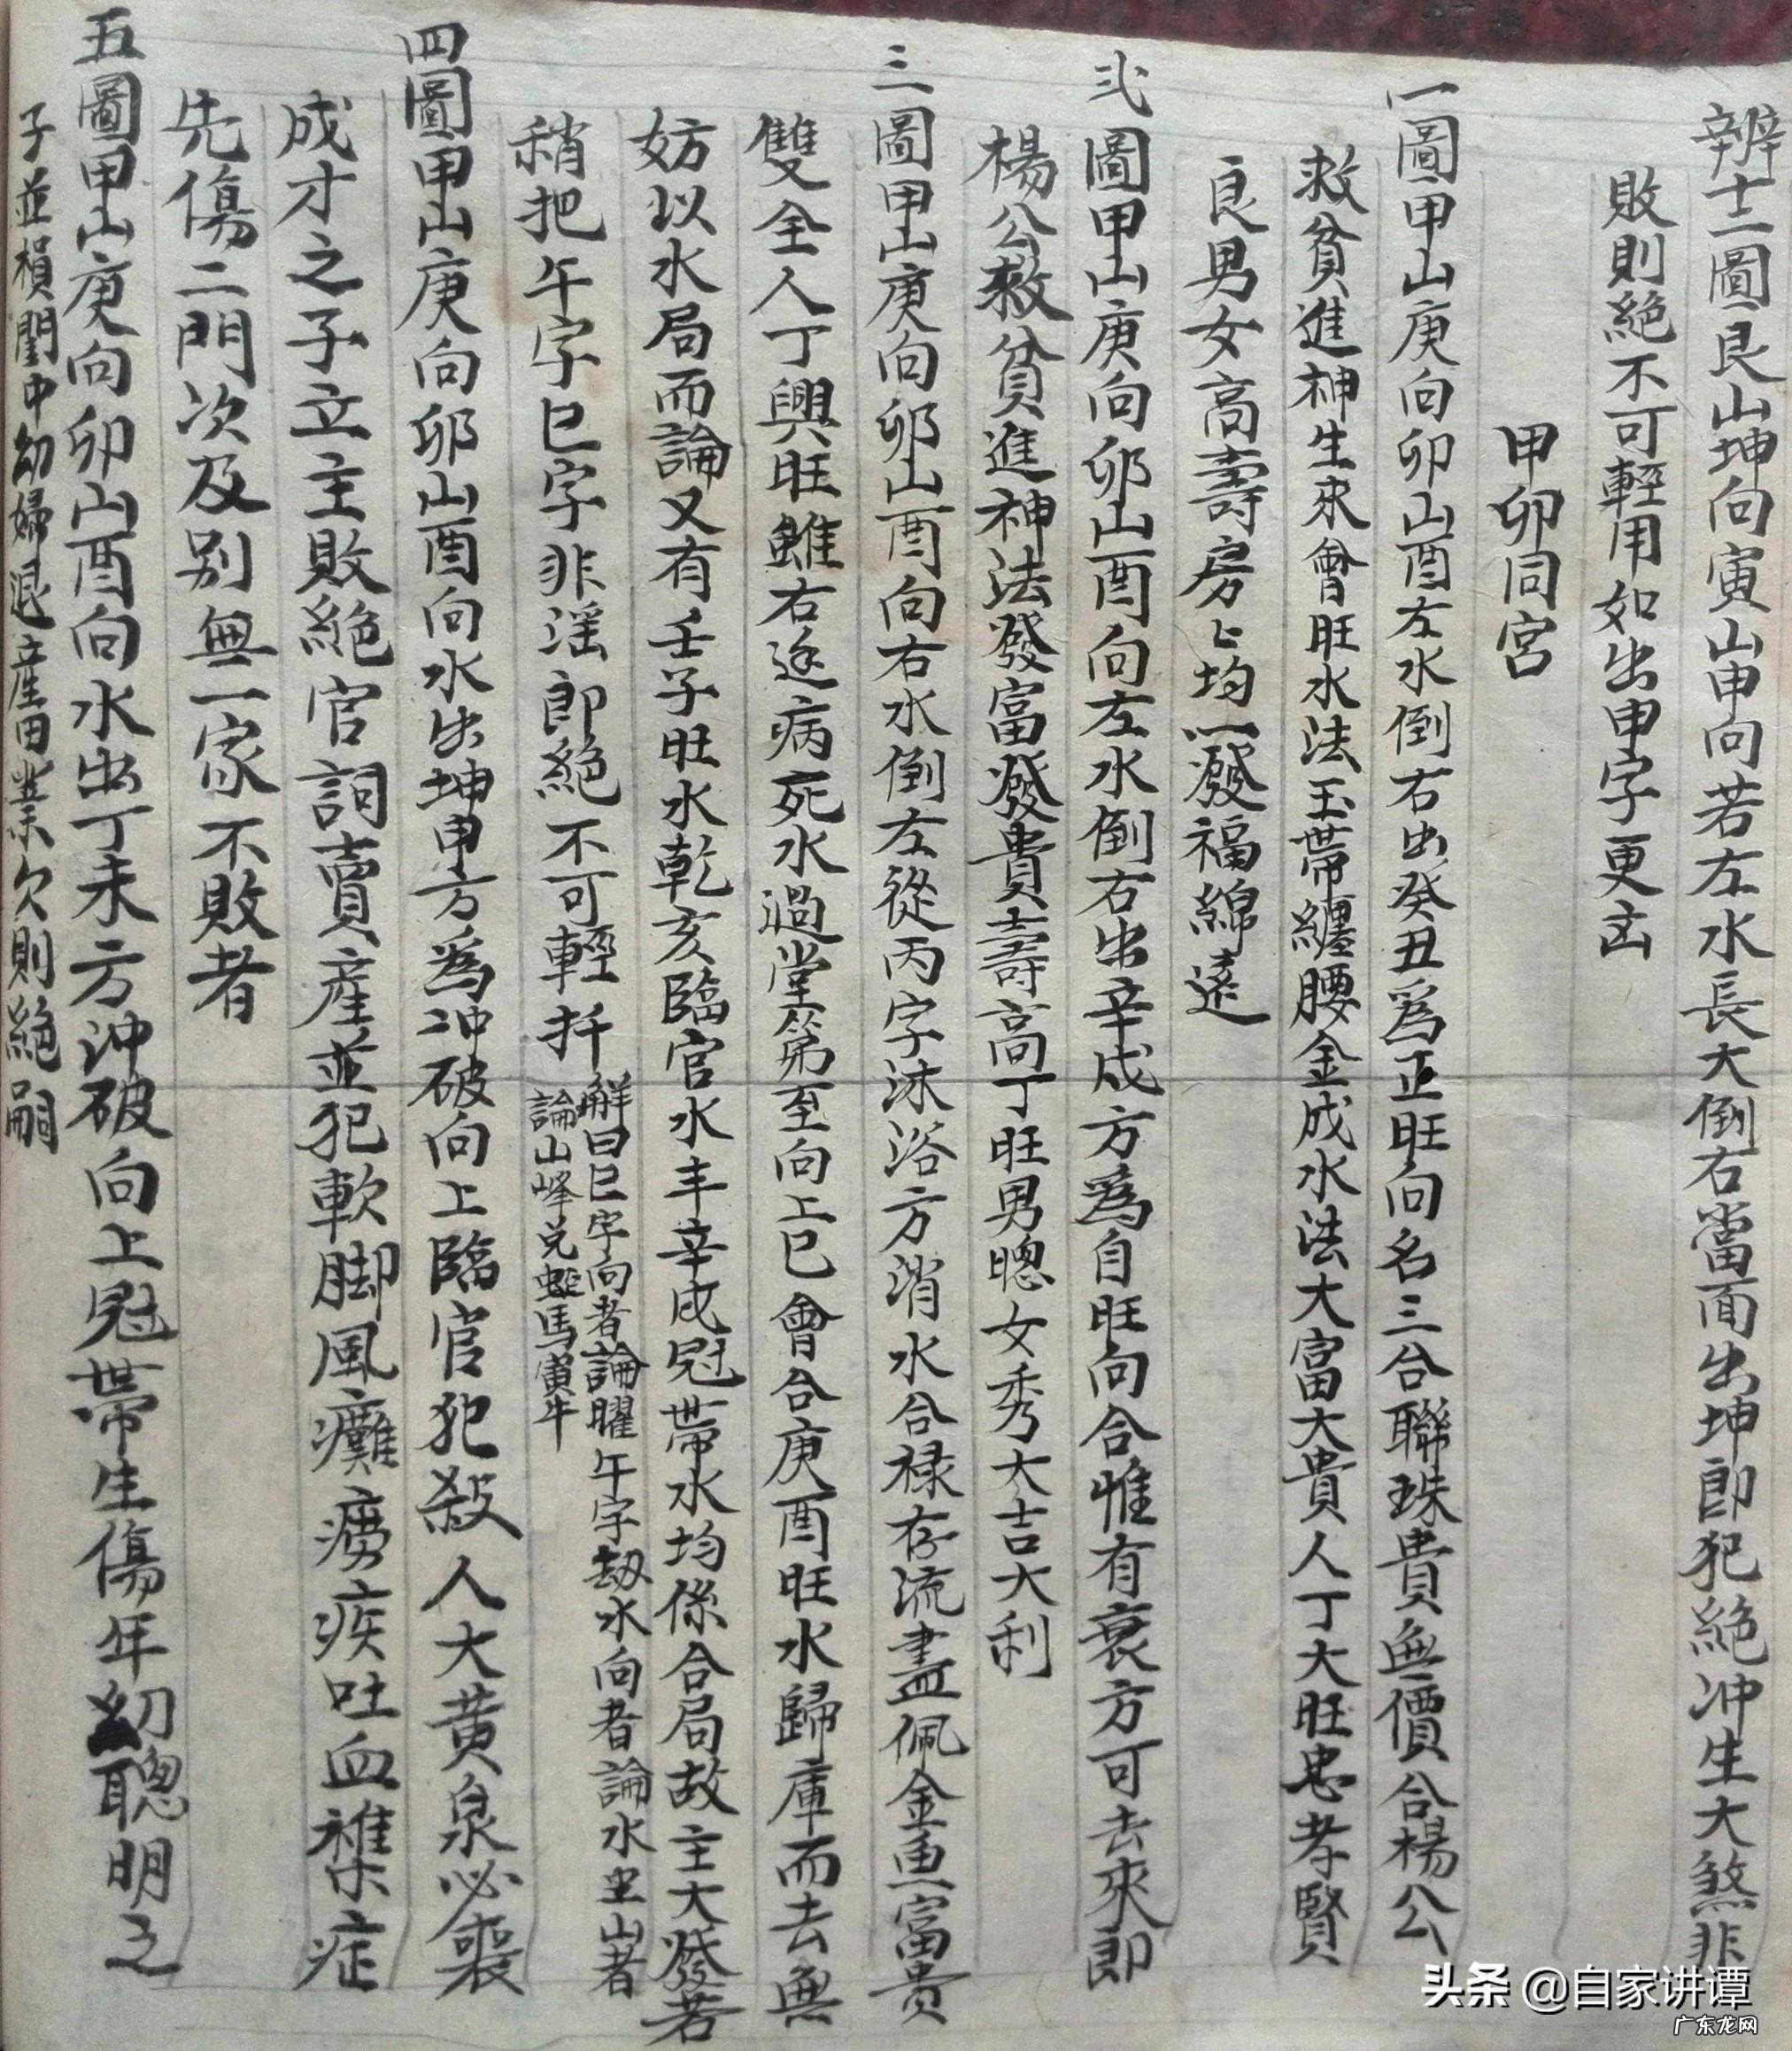 辨十二圖艮山坤向寅山申向若左水長大倒右當面出坤即犯絕冲生大煞非
敗則絕不可輕用如出申字更凶
甲卯同宮
一圖甲山庚向卯山酉左水倒右出癸丑爲正旺向名三合聯珠貴無價合楊公
救貧進神生來會旺水法玉帶纏腰金成水法大富大貴人丁大旺忠孝賢
良男女高壽房房均一發福綿遠
弍圖甲山庚向卯山酉向左水倒右出辛戍方爲自旺向合惟有衰方可去來即
楊公救貧進神法發富發貴壽高丁旺男聰女秀大吉大利
三圖甲山庚向卯山酉向右水倒左從丙字沐浴方消水合祿存流盡佩金魚富貴
雙全人丁興旺雖右迳病死水過堂第至向上已會合庚酉旺水歸庫而去無
妨以水局而論又有壬子旺水乾亥臨官水丰辛戍冠帶水均係合局故主大發若
稍把午字巳字非滛即絕不可輕扦
解曰巳字向者論曜午字劫水向者論水坐山者
論山峰兑蛇馬寅牛
四圖甲山庚向卯山酉向水出坤申方爲冲破向上臨官犯殺人大黄泉必喪
成才之子立主敗絕官詞賣產並犯軟脚風癱痨疾吐血襍症
先傷二門次及别無一家不敗者
五圖甲山庚向卯山酉向水出丁未方冲破向上冠帶生傷年幼聰明之
子並損閨中幼婦退產田業欠則絕嗣
头条 @自家讲谭
广东龙网